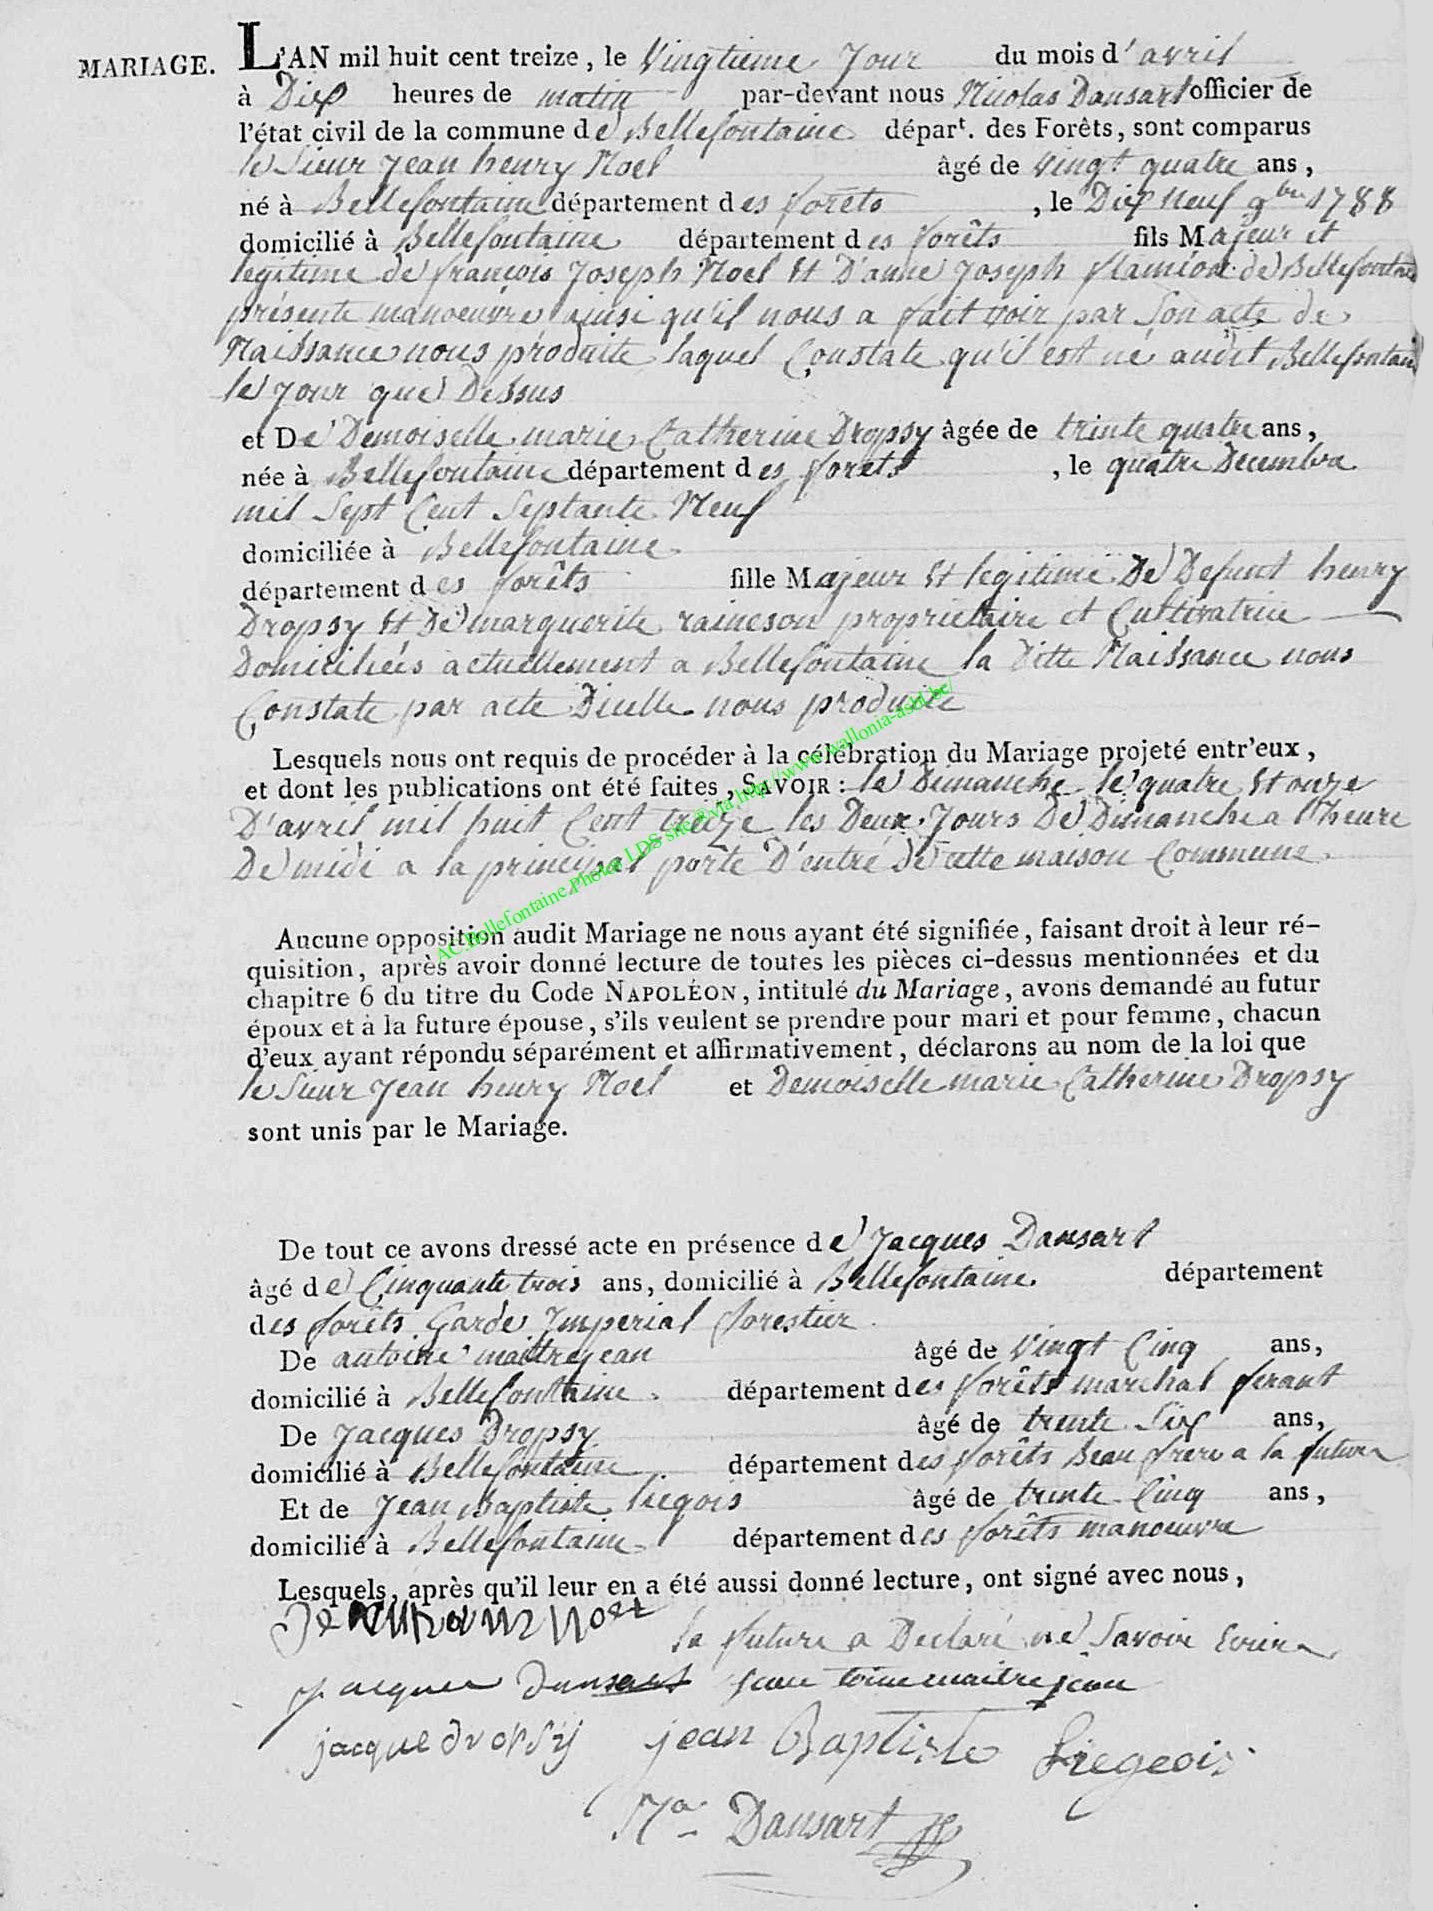 MARIAGE. L'AN mil huit cent treize, le Vingtieme Jour du mois d'avril
à Dix heures de matin par-devant nous Nicolas Dansart officier de
l'état civil de la commune de Bellefontaine départ. des Forêts, sont comparus
le Sieur Jean henry Noel âgé de vingt quatre ans,
né à Bellefontaine département des forêts, le Dix Neuf 9bre 1788
domicilié à Bellefontaine département des forêts fils Majeur et
legitime de françois Joseph Noel Et D'anne Joseph flamion de Bellefontaine
présente manoeuvre ainsi qu'il nous a fait voir par Son acte de
Naissance nous produite laquel Constate qu'il est né audit Bellefontaine
le Jour que Dessus
et De Demoiselle marie Catherine Dropsy âgée de trinte quatre ans,
née à Bellefontaine département des forets, le quatre Decembre
mil Sept Cent Septante Neuf
domiciliée à Bellefontaine
département des forêts fille Majeur Et legitime De Defunt henry
Dropsy Et De marguerite raineson proprietaire et Cultivatrice
Domiciliées actuellement a Bellefontaine la Ditte Naissance nous
Constate par acte Dicelle nous produite
Lesquels nous ont requis de procéder à la célébration du Mariage projeté entr'eux,
et dont les publications ont été faites, SAVOIR : le Dimanche le quatre Et onze
D'avril mil huit Cent treize les Deux Jours De Dimanche a l'heure
De midi a la principal porte D'entré de cette maison Commune.
AC.Bellefontaine.Photos LDS site@via http://www.wallonia-asbl.be/
Aucune opposition audit Mariage ne nous ayant été signifiée, faisant droit à leur ré-
quisition, après avoir donné lecture de toutes les pièces ci-dessus mentionnées et du
chapitre 6 du titre du Code NAPOLÉON, intitulé du Mariage, avons demandé au futur
époux et à la future épouse, s'ils veulent se prendre pour mari et pour femme, chacun
d'eux ayant répondu séparément et affirmativement, déclarons au nom de la loi que
le Sieur Jean henry Noel et Demoiselle marie Catherine Dropsy
sont unis par le Mariage.
De tout ce avons dressé acte en présence de Jacques Dansart
âgé de Cinquante trois ans, domicilié à Bellefontaine. département
des forêts Garde Imperial forestier
De antoine maitrejean âgé de Vingt Cinq ans,
domicilié à Bellefontaine. département des forêts marchal ferant
De Jacques Dropsy âgé de trente Six ans,
domicilié à Bellefontaine département des forêts Beau frere a la future
Et de Jean Baptiste liegois âgé de trinte Cinq ans,
domicilié à Bellefontaine département des forêts manoeuvre
Lesquels, après qu'il leur en a été aussi donné lecture, ont signé avec nous,
la future a Declaré ne Savoir Ecrire
Jacques Dansart Jean toine maitrejean
jacque dropsy jean Baptiste Liegeois
Na Dansart